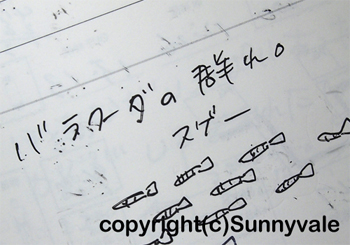 バラクーダの群れ。
スゲー
copyright(c)Sunnyvale